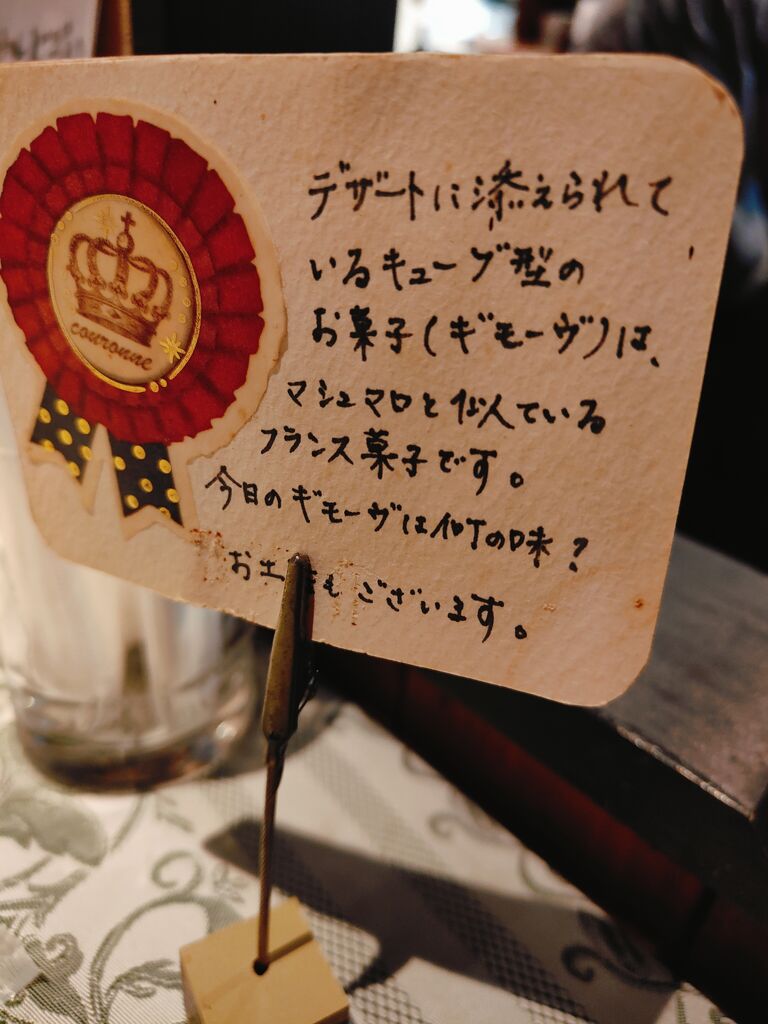 couronne
デザートに添えられて
いるキューブ型の
お菓子(ギモーヴ)は、
マシュマロと似ている
フランス菓子です。
今日のギモーヴは何の味?
お土 もございます。